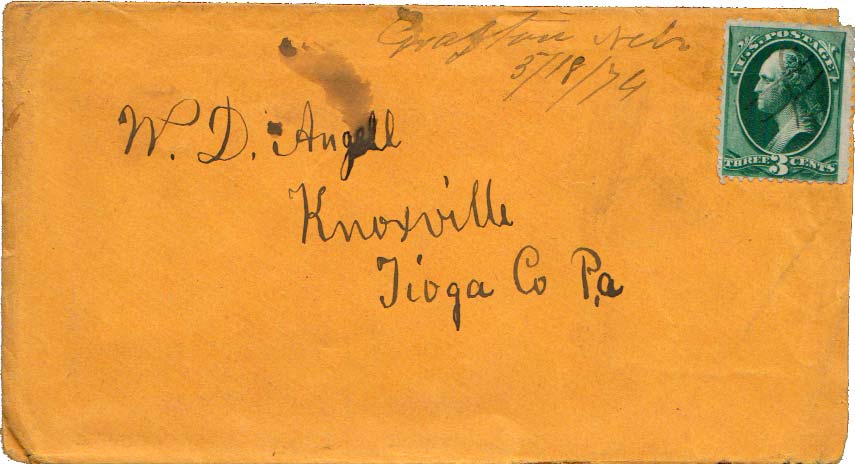 Grafton Neb
5/18/74
U.S. POSTAGE
THREE 3 CENTS
W. D. Angell
Knoxville
Tioga Co Pa